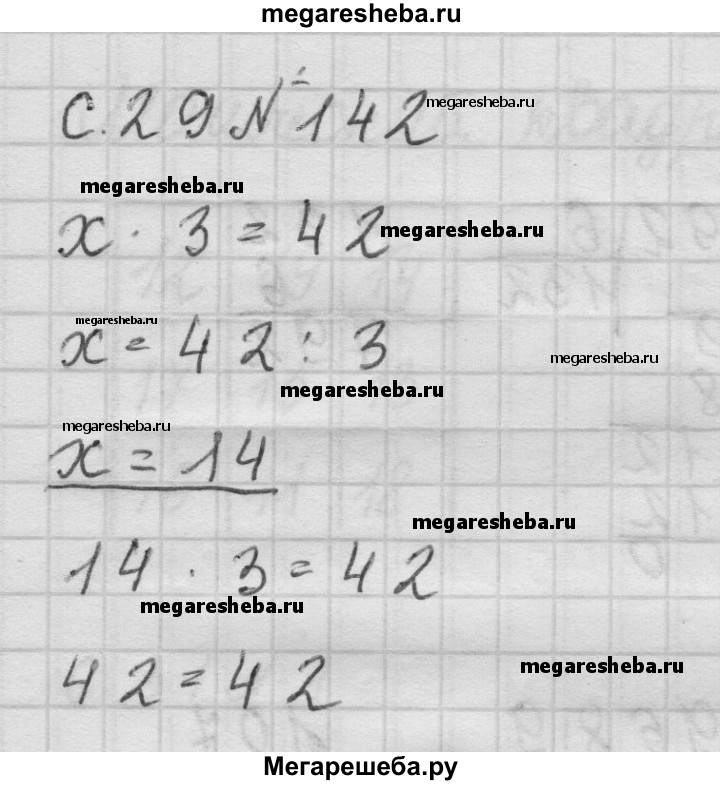 megaresheba.ru
С. 29 № 142 megaresheba.ru
megaresheba.ru
x · 3 = 42 megaresheba.ru
megaresheba.ru
x = 42 : 3 megaresheba.ru
megaresheba.ru
megaresheba.ru
x = 14
megaresheba.ru
14 · 3 = 42
megaresheba.ru
42 = 42 megaresheba.ru
Мегарешеба.ру